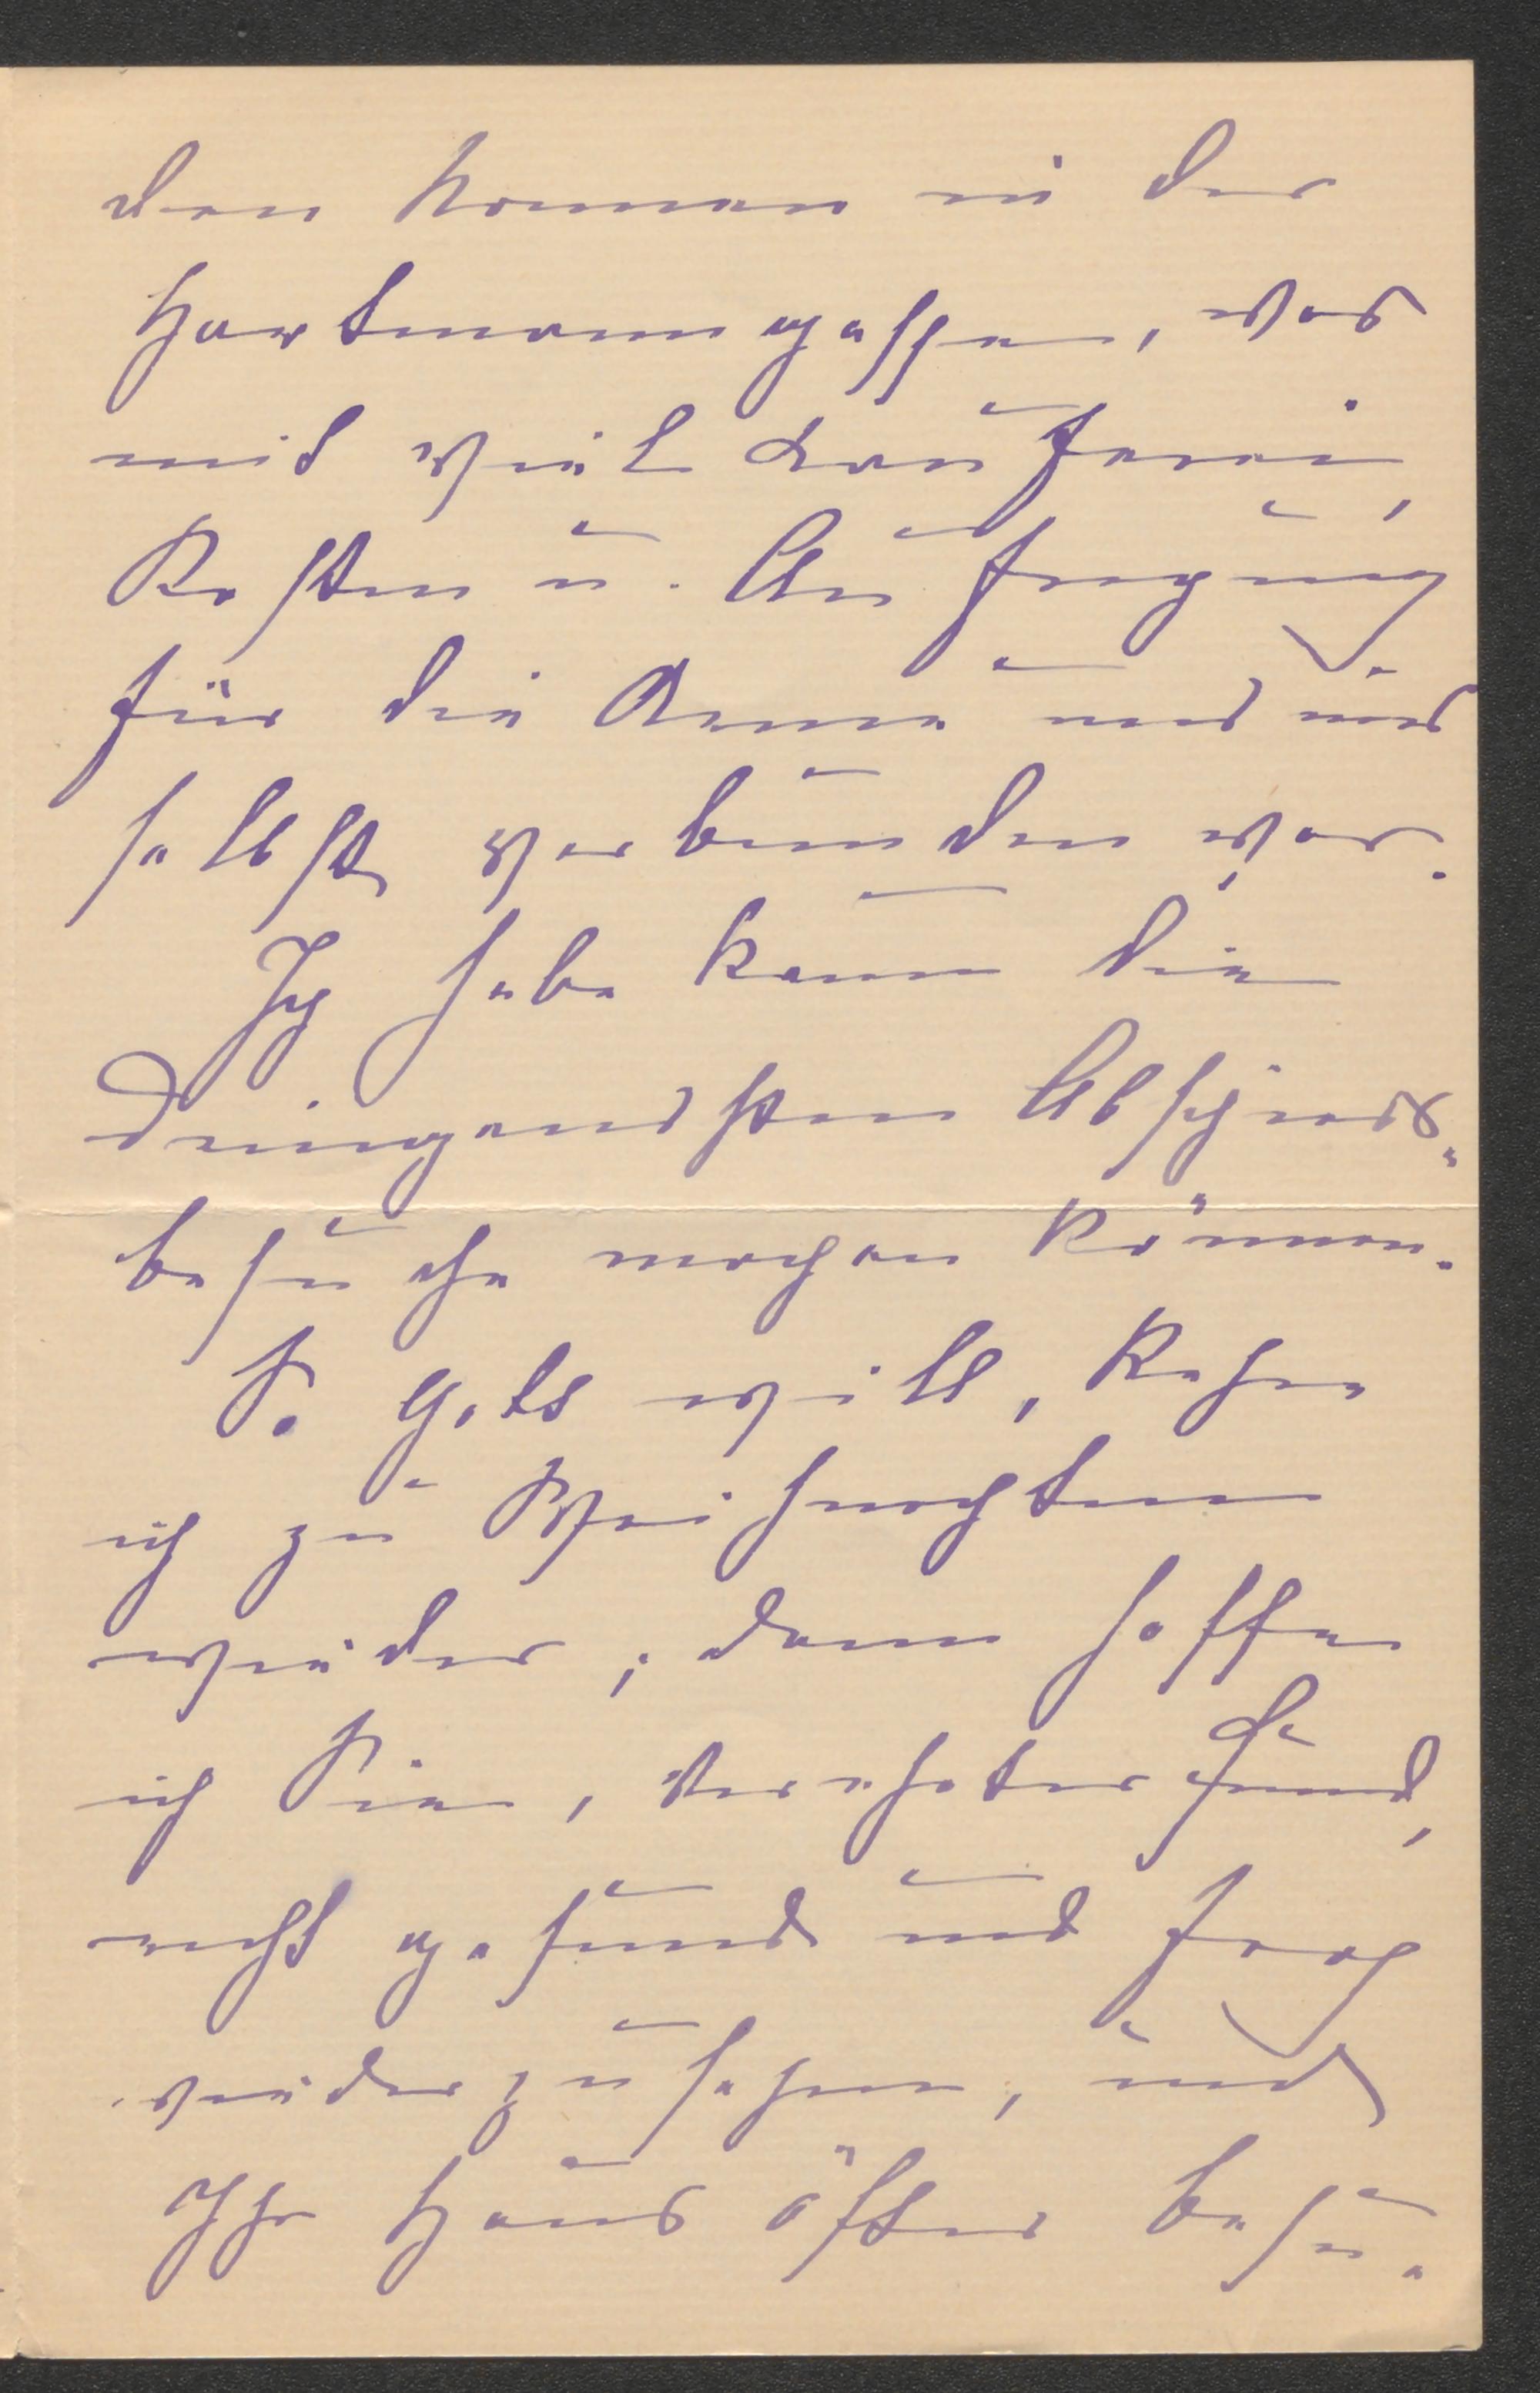 den kommen in der
Hartmanngasse, was
mit viel Lauferei,
Kosten u. Aufregung
für die Arme und uns
selbst verbunden war.
Ich habe kaum die
dringendsten Abschieds-
besuche machen können.
So Gott will, kehre
ich zu Weihnachten
wieder; dann hoffe
ich Sie, verehrter Freund,
recht gesund und frag
wiederzusehen, und
Ihr Haus öfter besu-